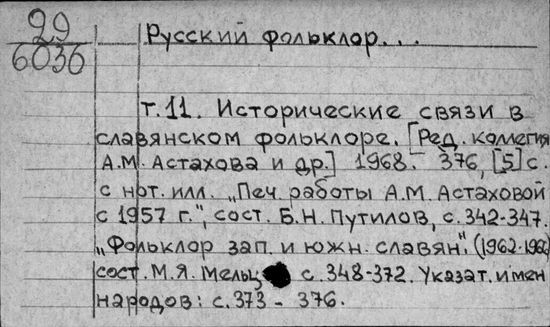 29
6036
Русский фольклор...
т.11. Исторические связи в
славянском фольклоре. [Ред. коллегия
А.М. Астахова и др.] 1968. 376, [5] с.
с нот. илл. „Печ. работы А.М. Астаховой
с 1957 г.", сост. Б.Н. Путилов, с. 342-347.
„Фольклор зап. и южн. славян". (1962-
сост. М.Я. Мельц с. 348-372. Указат. имен
народов: с. 373 - 376.